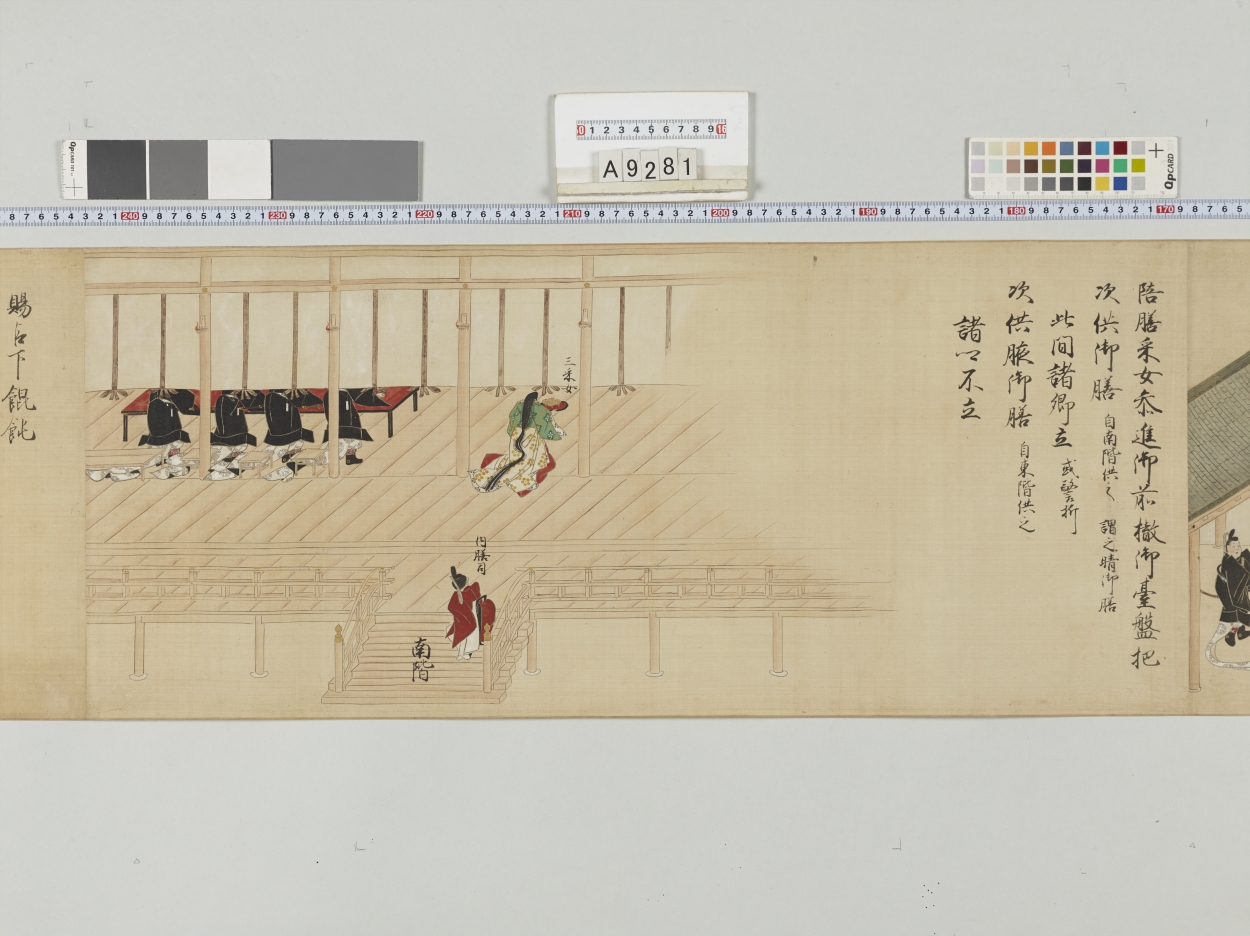 陪膳采女参進御前撤御臺盤把
次供御膳 自南階供之 謂之晴御膳
此間諸卿立 或警折
次供腋御膳 自東階供之
諸卿不立
三采女
内膳司
南階
賜臣下餛飩
A9281
QPCARD
QPCARD